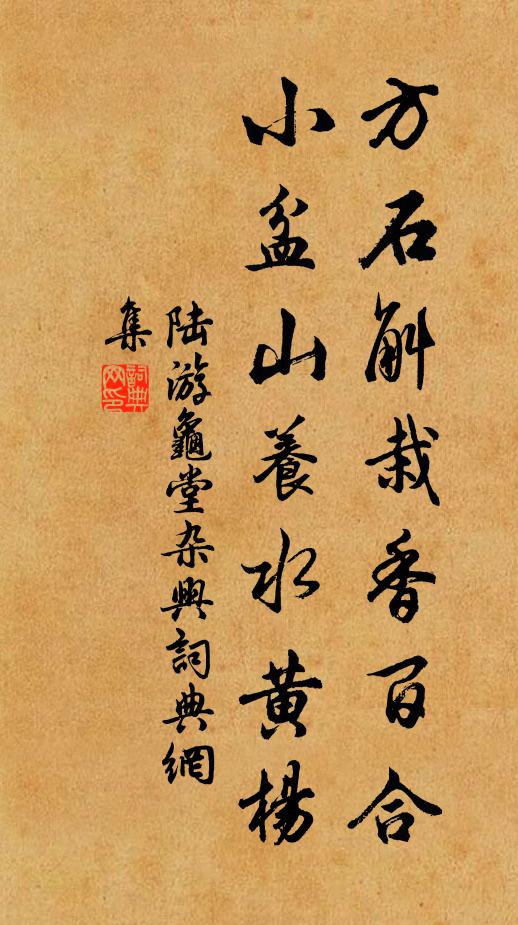 方石斛栽香百合
小盆山養水黄楊
陸游龜堂杂興詞典網
集
詞典網印